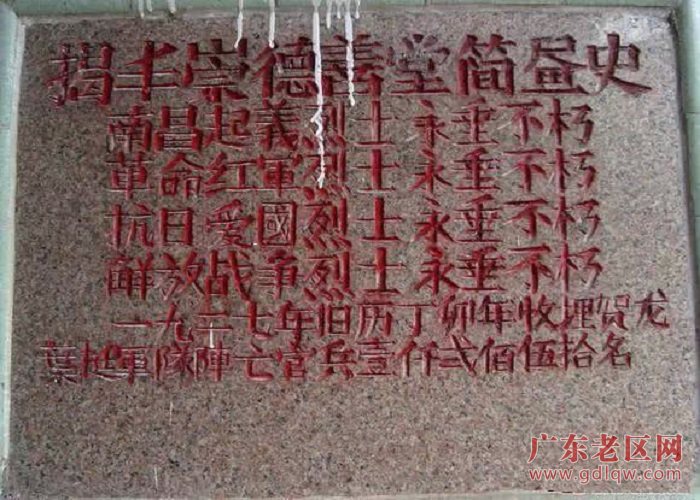 揭丰崇德善堂简歷史
南昌起義烈士永垂不朽
革命红軍烈士永垂不朽
抗日爱國烈士永垂不朽
解放战争烈士永垂不朽
一九二七年旧历丁卯年收埋贺龙
葉挺軍隊陣亡官兵壹仟弍佰伍拾名
广东老区网
www.gdlqw.com